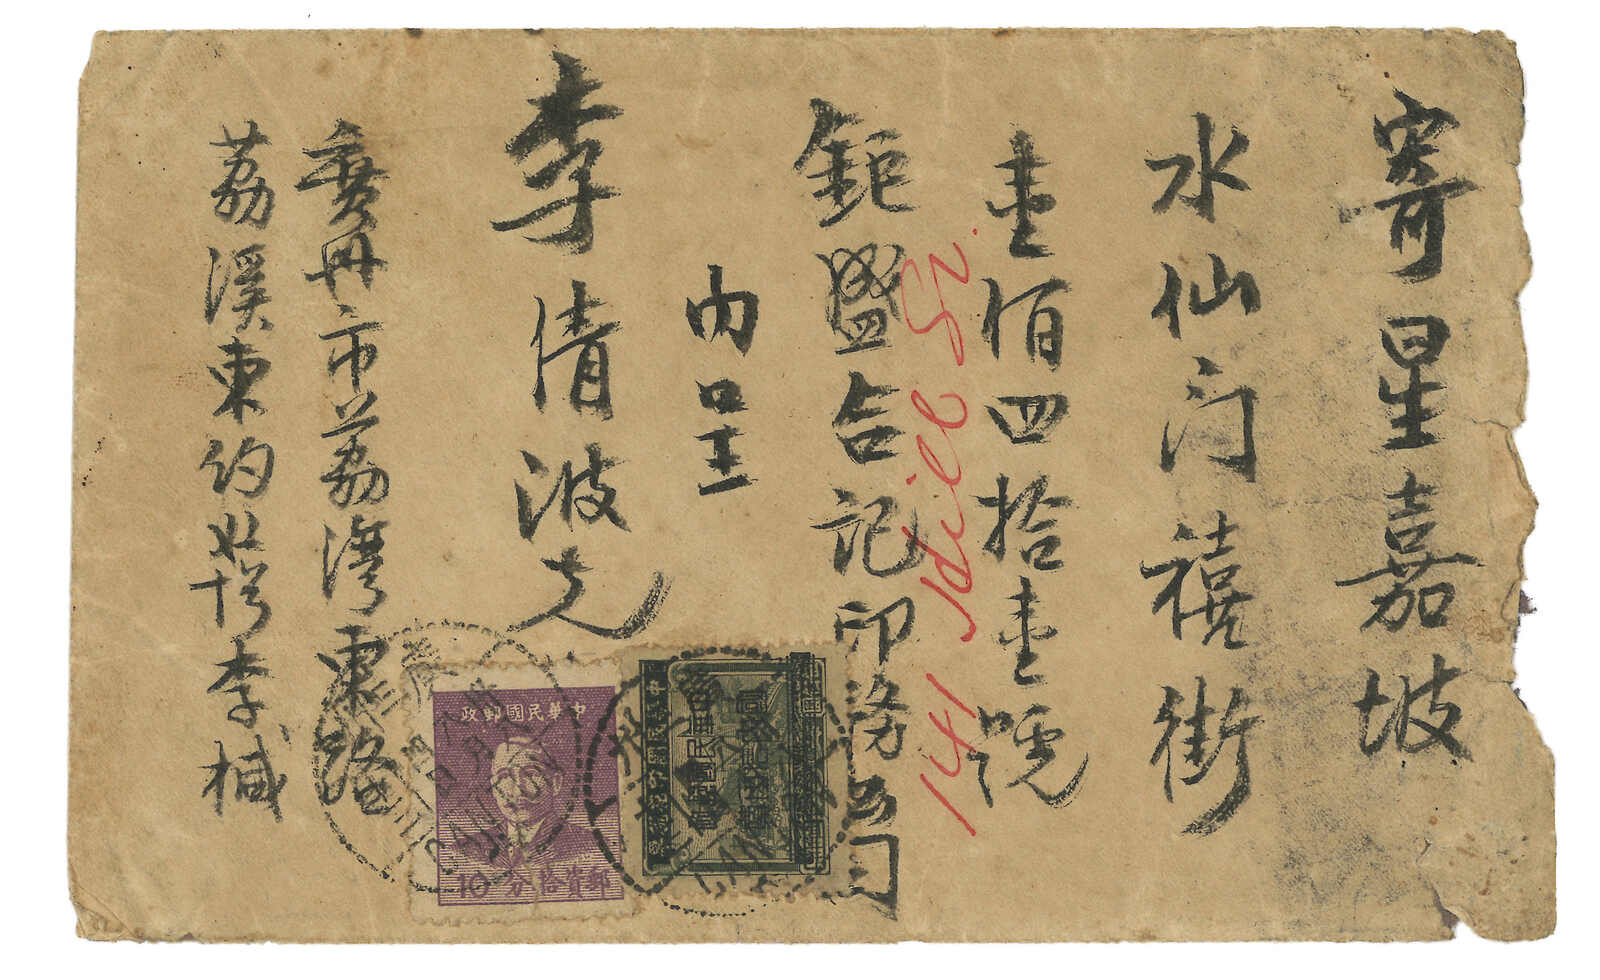 寄星嘉坡
水仙门禧街
壹佰四拾壹號
141 Hill St.
鉅盛合記印務公司
内呈
李倩波先
廣州市荔灣東路
荔溪東約
李椷
中華民國郵政
郵資拾分
10
CANTON